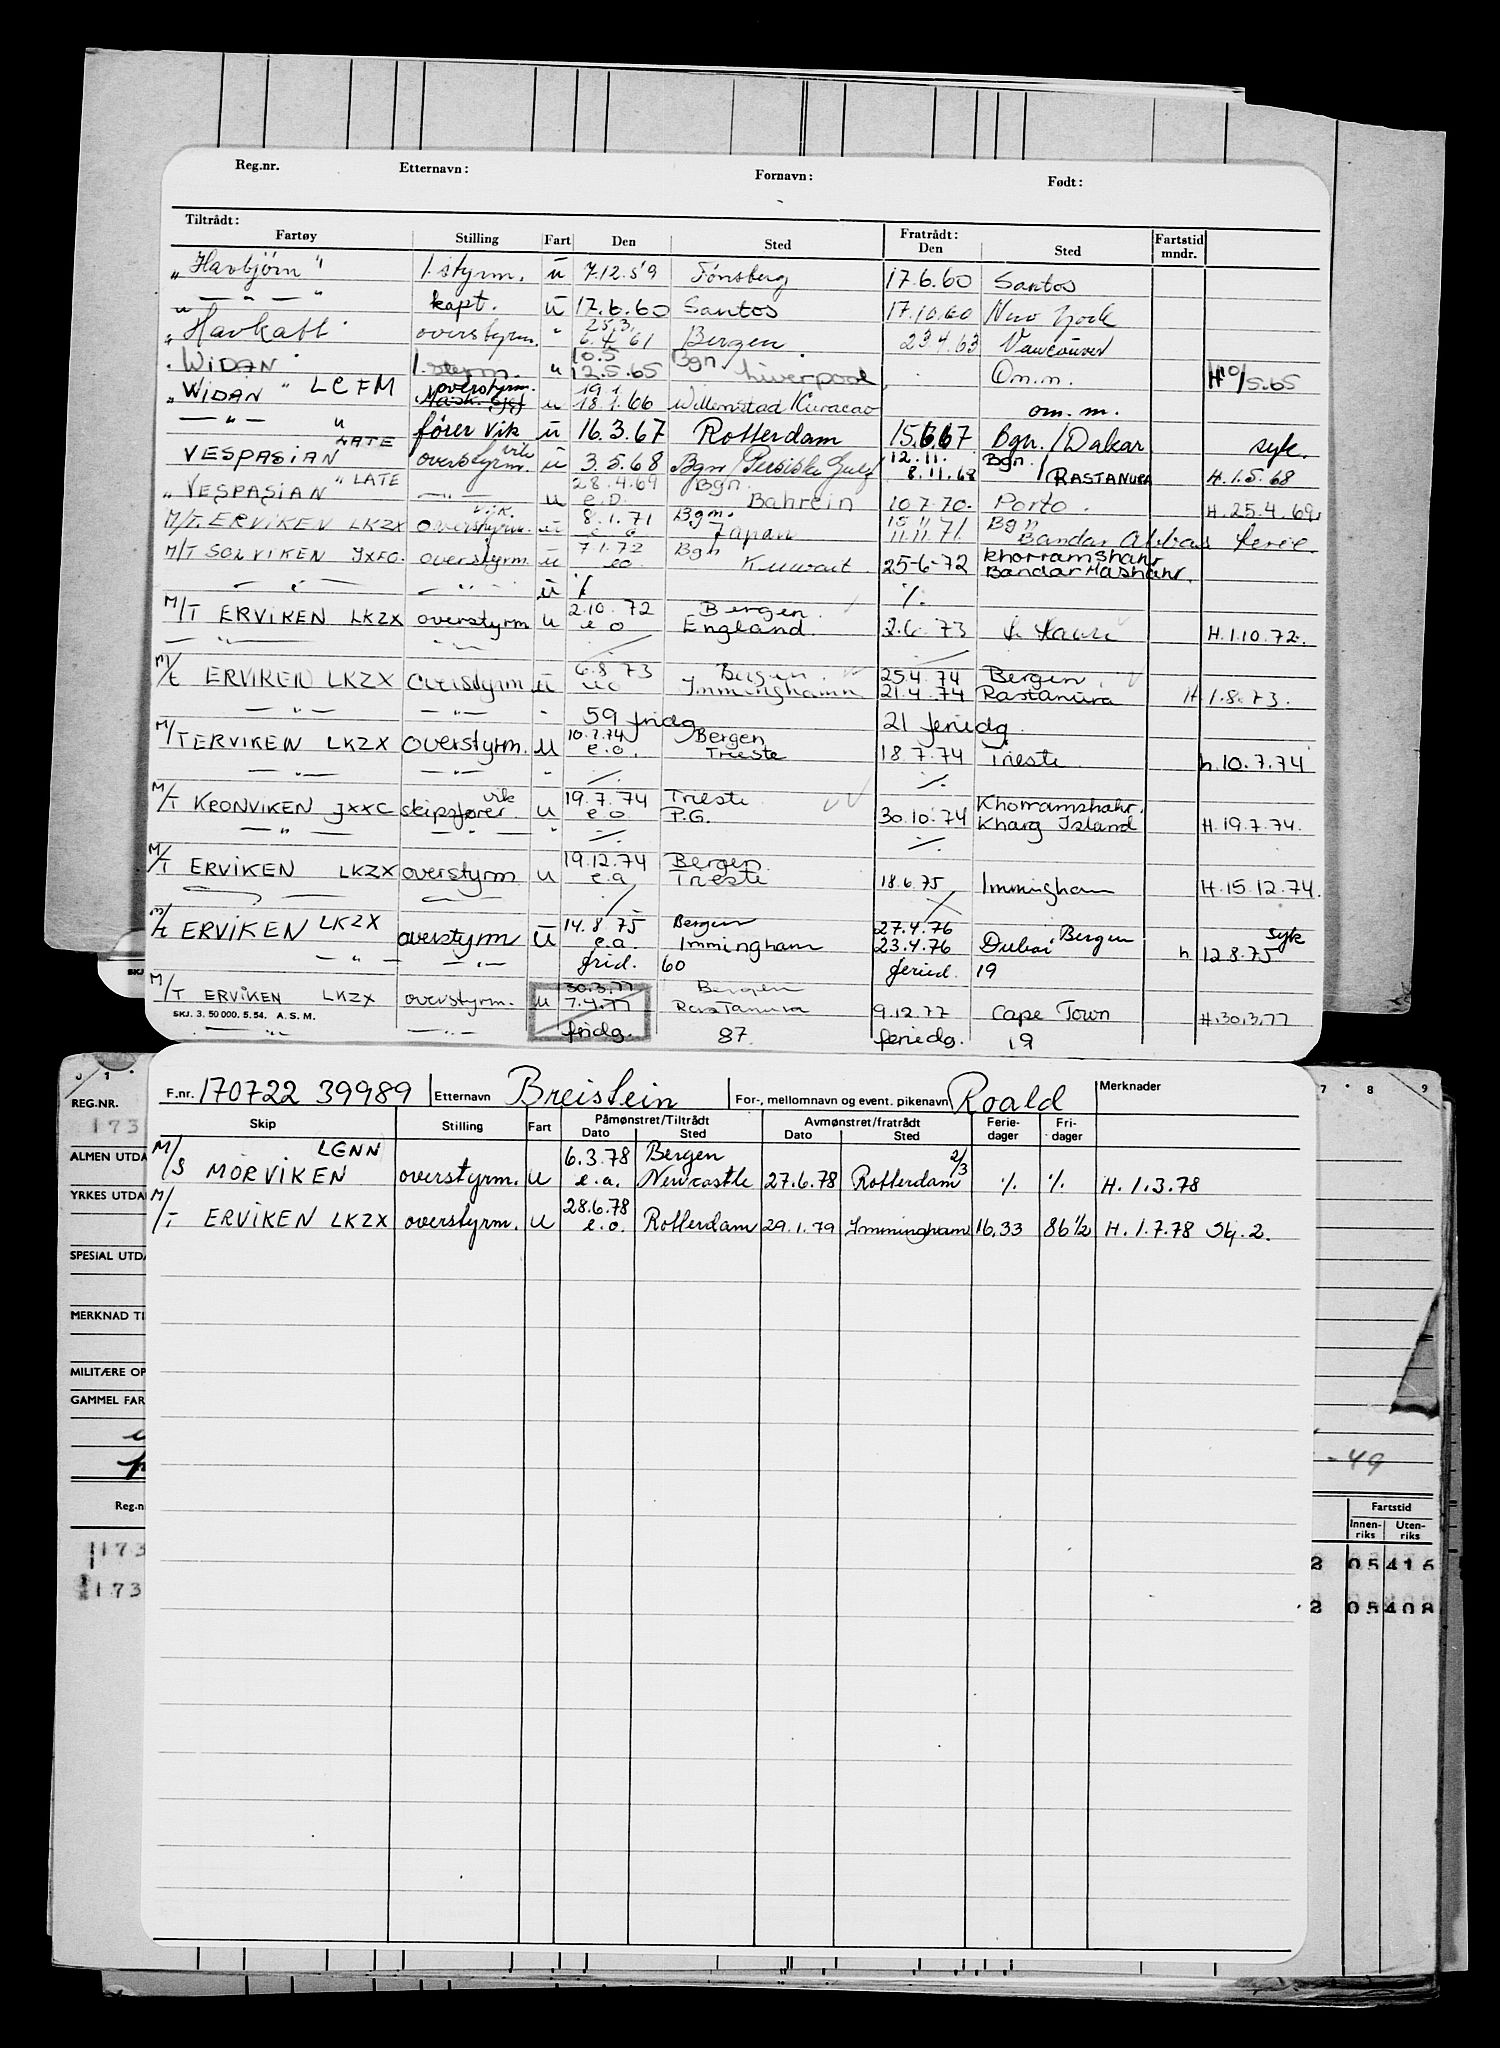 Reg.nr. Etternavn: Fornavn: Født:
Tiltrådt: Fratrådt: Fartstid
Fartøy Stilling Fart Den Sted Den Sted mndr.
„ Havbjörn " 1. styrm. u 7.12.59 Tönsberg 17.6.60 Santos
— " — " kapt. u 17.6.60 Santos 17.10.60 New York
25.3.
„ Havkatt overstyrm. " 6.4.61 Bergen 23.4.63 Vancouver
10.5 Bgn.
WIDAN 1. styrm. " 12.5.65 Liverpool Om.m. H 10/5.65
overstyrm. 19.1
„ WIDAN " LCFM u 18.1.66 Willemstad Kuracao om. m.
— " — " fører vik u 16.3.67 Rotterdam 15.6.67 Bgn./Dakar syk.
LATE vik 12.11. Bgn.
VESPASIAN overstyrm. u 3.5.68 Bgn/Persiske Gulf 8.11.68 / RASTANURA H.1.5.68
" LATE 28.4.69 Bgn.
„ VESPASIAN — " — u e.o. Bahrein 10.7.70. Porto. H.25.4.69.
vik. 8.1.71 Bgn. 15.11.71 Bgn
M/T. ERVIKEN LKZX overstyrm. u e o Japan 11.11.71 Bandar Abbas ferie.
7.1.72 Bgn Khorramshahr
M/T SOLVIKEN JXFO. overstyrm. u eo Kuwait 25-6-72 Bandar Mashahr.
— " — — " — u % %.
2.10.72 Bergen
M/T ERVIKEN LKZX overstyrm u e o England. 2.6.73 H.1.10.72.
— " — — " —
6.8.73 Bergen. 25.4.74 Bergen
M/T ERVIKEN LKZX overstyrm u eo Immingham 21.4.74 Rastanura H 1.8.73.
— " — — " — - 59 fridg 21 feriedg
10.7.74 Bergen
M/T ERVIKEN LKZX overstyrm. u e.o. Trieste 18.7.74 Trieste h.10.7.74
— " — — " — " %. %.
vik 19.7.74 Trieste Khorramshahr.
M/T KRONVIKEN JXXC skipsfører. u e o P.G. 30.10.74 Kharg Island H.19.7.74.
— " — — " — " %. %.
19.12.74 Bergen
M/T ERVIKEN LKZX overstyrm u e.a Trieste 18.6.75 Immingham H.15.12.74.
14.8.75 Bergen 27.4.76 Bergen syk
M/T ERVIKEN LKZX overstyrm u e.a. Immingham 23.4.76 Dubai h 12.8.75
— " — — " — frid. 60 feried. 19
30.3.77 Bergen
M/T ERVIKEN LKZX overstyrm. u 7.4.77 RasTanura 9.12.77 Cape Town H.30.3.77
SKJ. 3. 50 000. 5. 54. A. S. M.
— " — — " — fridg. 87. feriedg. 19
SKJ
F.nr. 170722 39989 Etternavn Breistein For-, mellomnavn og event. pikenavn Roald Merknader
Skip Stilling Fart Påmønstret/Tiltrådt Avmønstret/fratrådt Ferie- Fri-
Dato Sted Dato Sted dager dager
LGNN 6.3.78 Bergen 2/3
M/S MORVIKEN overstyrm. u e.a. Newcastle 27.6.78 Rotterdam % % H. 1.3.78
28.6.78
M/T ERVIKEN LKZX overstyrm. u e.o. Rotterdam 29.1.79 Immingham 16,33 86 1/2 H. 1.7.78 Sj. 2.
REG.NR.
173
ALMEN UTDA
YRKES UTDA
SPESIAL UTDA
MERKNAD TI
MILITÆRE OP
GAMMEL FAR
Reg.n
173
173
7 8 9
- 49
Fartstid
Innen-riks Uten-riks
2 05 416
2 05 408